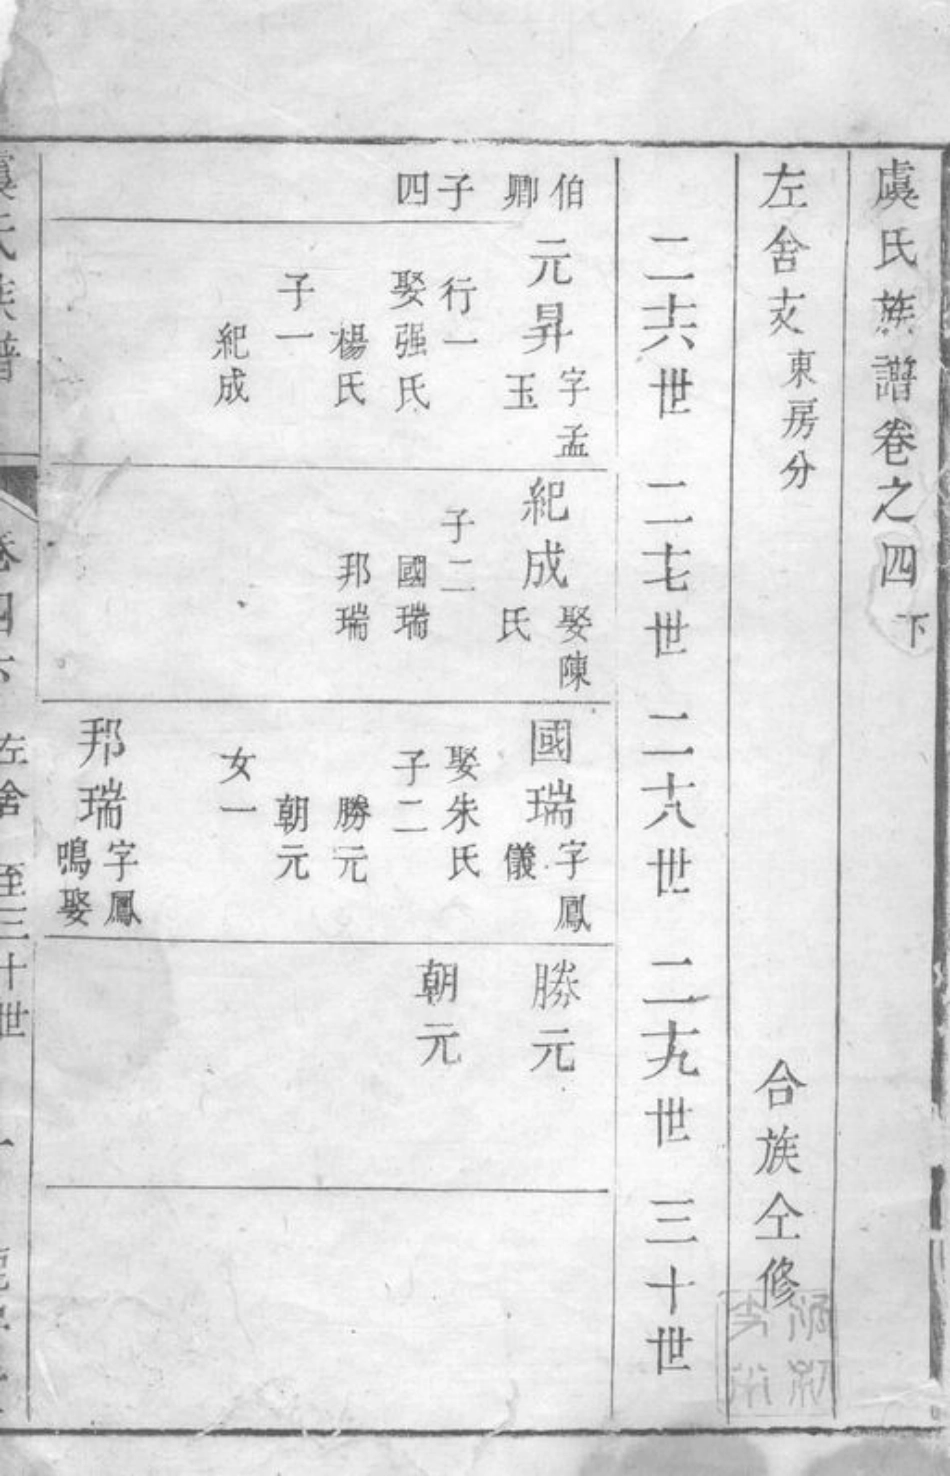 虞氏族譜卷之四下
左舍支東房分
合族仝修
二十六世
二十七世
二十八世
二十九世
三十世
伯卿
子四
元昇字孟玉
行一
娶强氏
楊氏
子一
紀成
紀成娶陳氏
子二
國瑞
邦瑞
國瑞字鳳儀
娶朱氏
子二
勝元
朝元
女一
邦瑞字鳳鳴娶
勝元
朝元
虞氏族譜
卷四下
左舍
至三十世
一